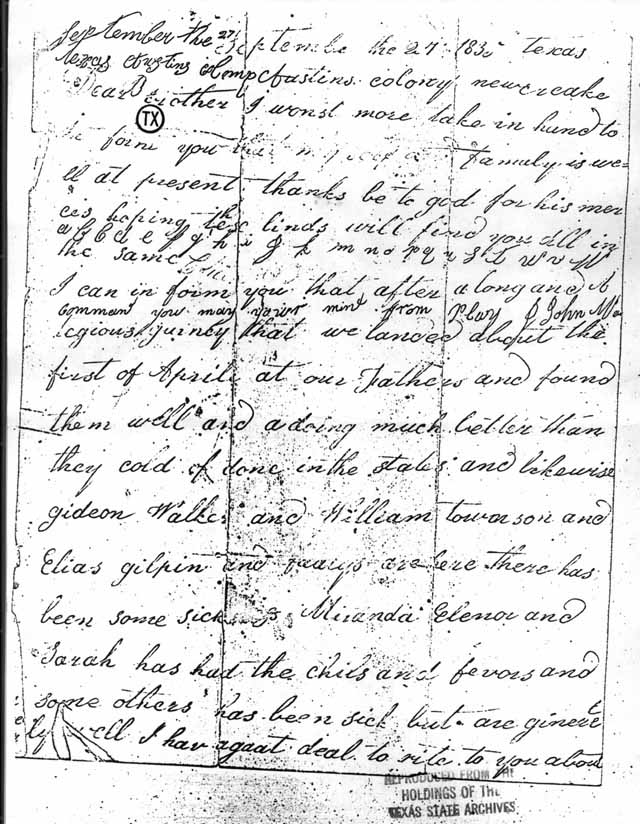 September the 27 Septembe the 27 1835 texas
texas Austins Comp Austins colony new creake
Dear Brother I wonst more take in hand to
in form you that my self a Famuly is we=
ell at present thanks be to god for his mer
cies hoping these linds will find you all in
a b c d e f g h i J k m n o p q r s t u v w
the same
I can in form you that after a long and t
comman you may your mind from play J John Wa
egious jurney that we landed about the
first of April at our Fathers and found
them well and a doing much better than
they cold of done in the states and likewise
gideon Walker and William towonson and
Elias gilpin and are here There has
been some sickness Miranda Elenor and
Sarah has had the chils and fevors and
some others has been sick but are ginerel
ly well I hav a gaat deal to rite to you about
TX
REPRODUCED FROM THE
HOLDINGS OF THE
TEXAS STATE ARCHIVES